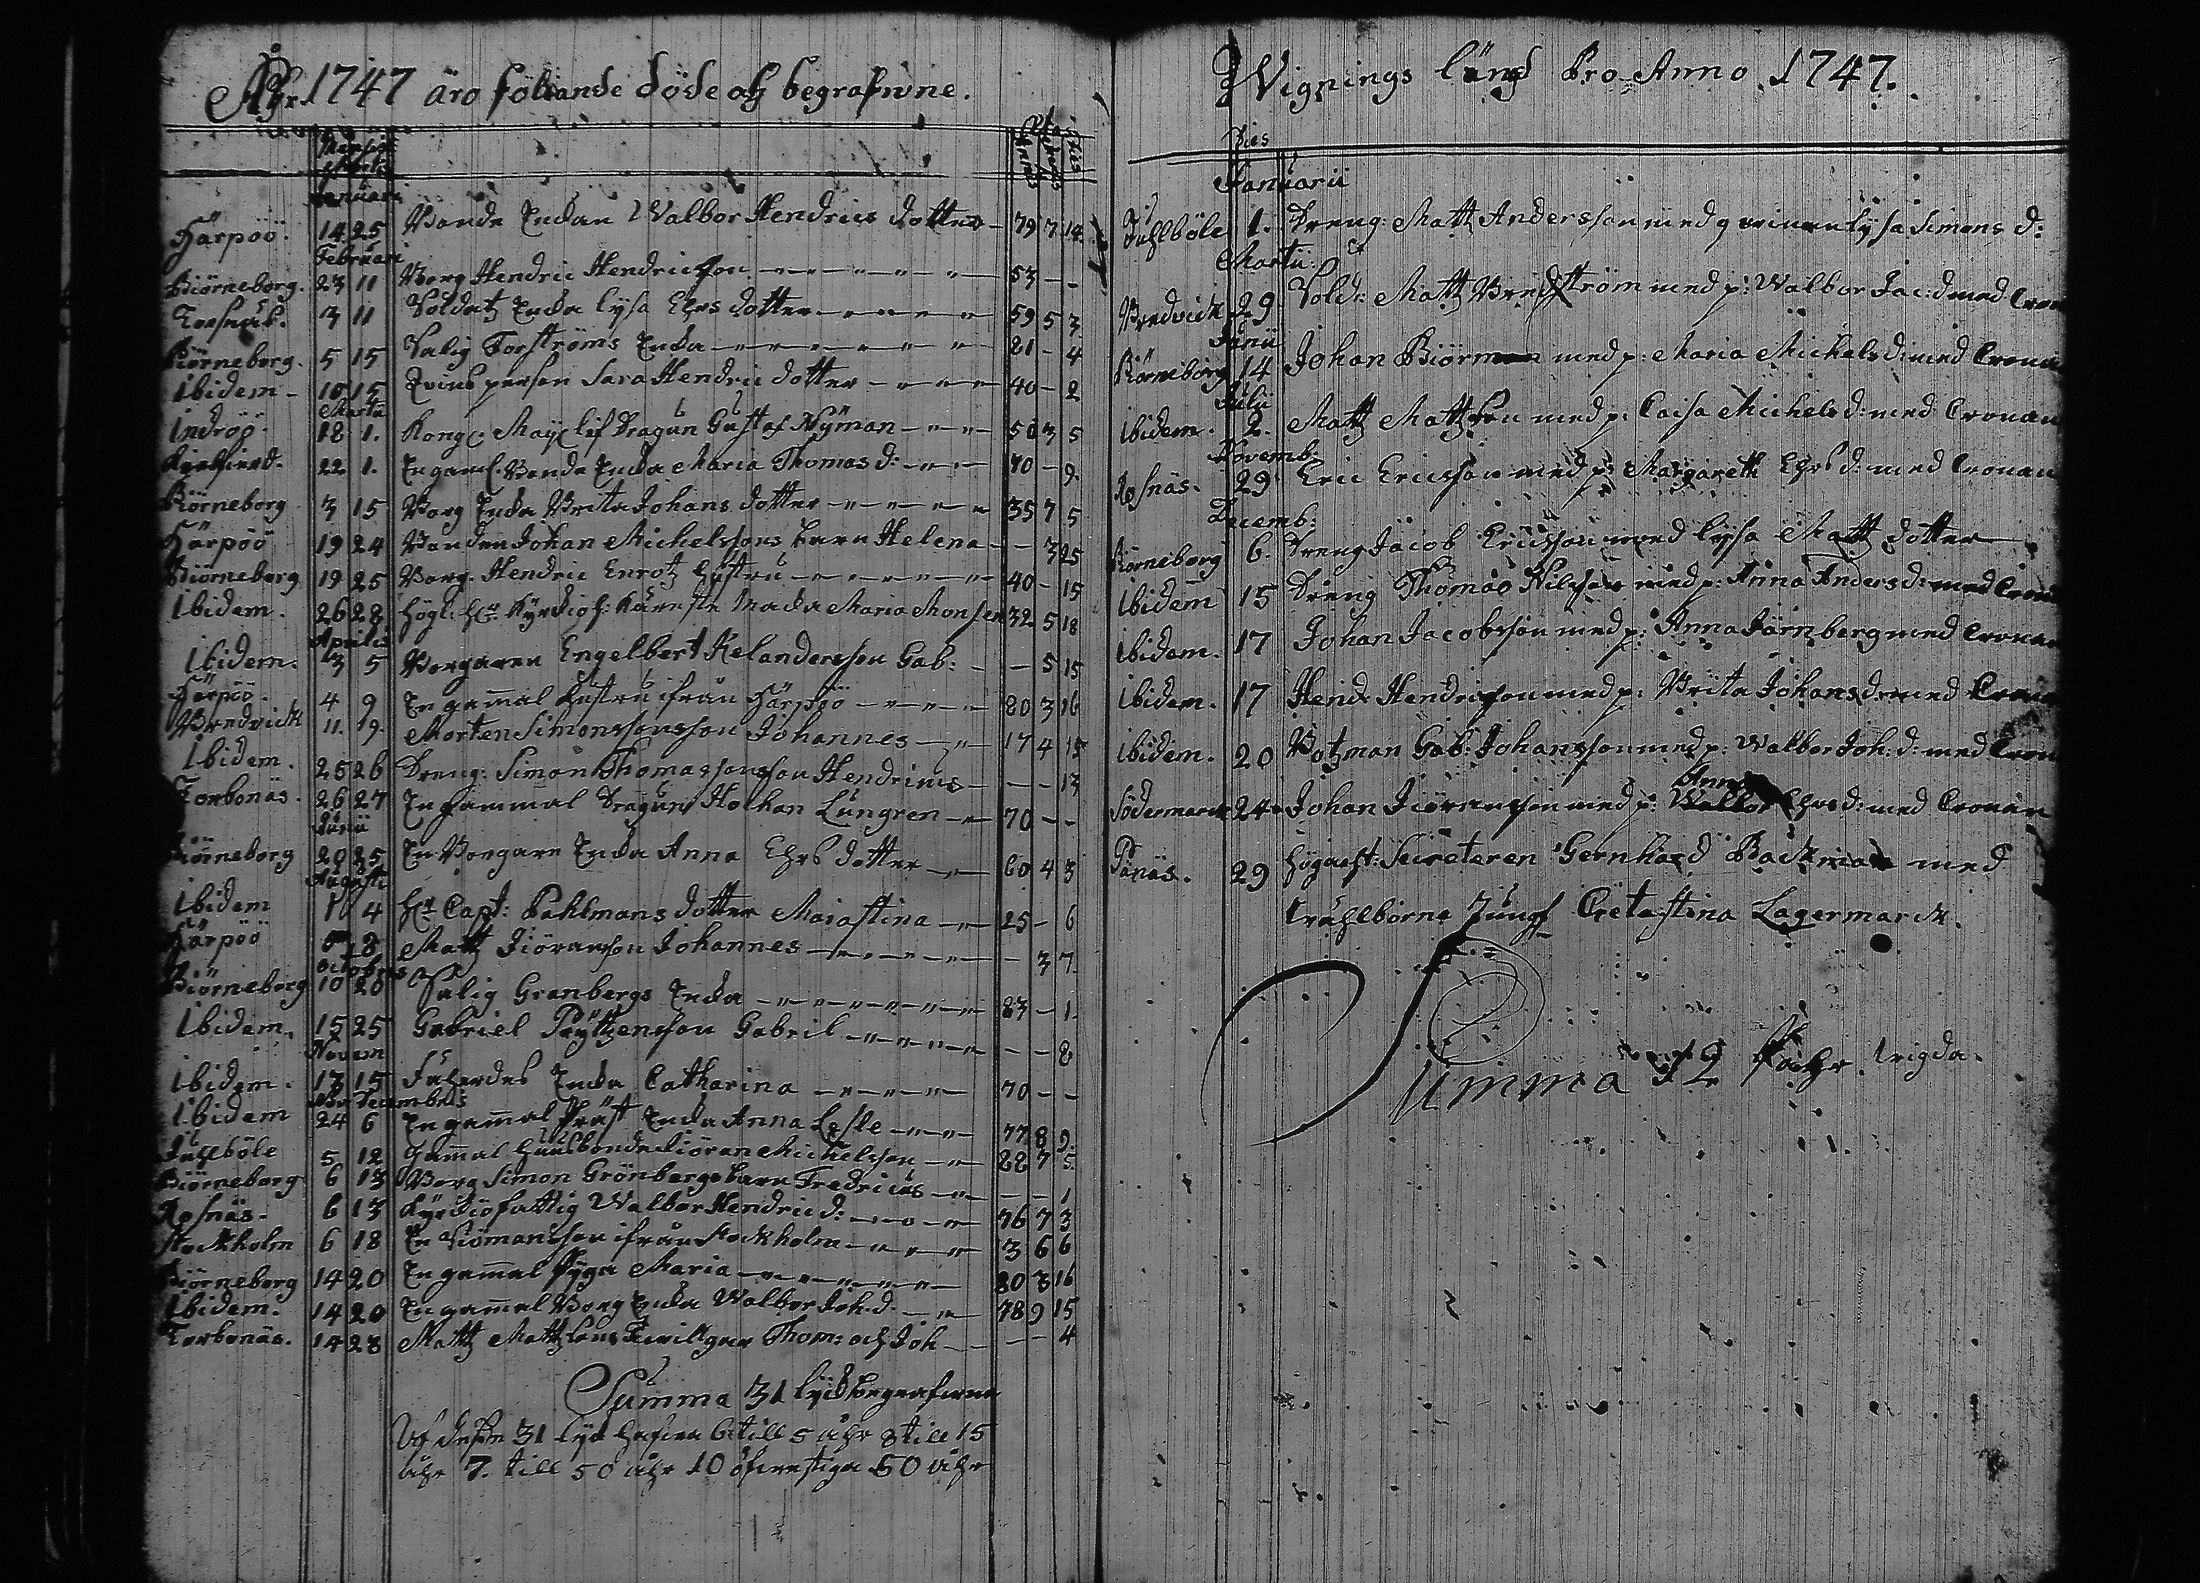 Åhr 1747 äroföliande döde och begrafwne.
Mensis Mortis
Ætas
Annus Mens Dies
Januari
Härpöö. 14 25 Bonde Enckan Walbor Hendrics dotter 79 7 14
Februari
Biörneborg. 23 11 Borg Hendric Hendricsson 53 - -
Torsnäs. 3 11 Soldatz Encka Lysa Ehrs dotter 59 5 3
Biörneborg. 5 15 Salig Forströms Encka 81 - 4
Ibidem 10 15 Qvins person Sara Hendric dotter 40 - 2
Martii
Indröö. 18 1. Kongl: Maij: lif Dragun Gustaf Nÿman 50 3 5
22 1. En gamel Bonde Encka Maria Thomas d: 70 - 9.
Biörneborg 3 15 Borg Encka Brita Johans dotter 35 7 5
Härpöö 19 24 Bonden Johan Michelssons barn Helena - 3 25
Biörneborg. 19 25 Borg. Hendric Enrotz hustru 40 - 15
Ibidem. 26 28 Högl: Hr: Maria Monsen 32 5 18
Aprilis
Ibidem. 3 5 Borgaren Engelbert Kelanderssson Gab: - 5 15
Härpöö. 4 9 En gammal hustru ifrån Härpöö 80 3 16
Bredvick 11. 19. Morten Simonssonsson Johannes 17 4 15
Ibidem. 25 26 Dreng: Simon Thomassonsson Hendricus - - 13
Torbonäs. 26 27 En gammal Dragun Hochan Lungren 70 - -
Junii
Biörneborg 20 25 En Borgare Encka Anna Ehrs dotter 60 4 3
Augusti
Ibidem 1 4 Hr Capt: Pahlmans dotter Maiastina 25 - 6
Härpöö 8 Matz Jiöransson Johannes - 3 7.
Octobris
Biörneborg 10 20 Salig Granbergs Encka 83 - 1.
Ibidem. 15 25 Gabriel Prÿtzensson Gabril - - 8
Novem
Ibidem. 13 15 Encka Catharina 70 - -
Decembris
Ibidem 24 6 En gammal Präst Encka Anna Lesle 77 8 9.
Inhlböle 5 12 Gammal Huusbonde Jiöran Michelsson 82 7 5
Biörneborg 6 13 Borg Simon Grönbergs barn Fredricus - - 1
Rosnäs. 6 13 Kyrckiofattig Walbor Hendric d: 76 7 3
Stockholm 6 18 En Siömansson ifrån Stockholm 3 6 6
Biörneborg 14 20 En gammal Pyga Maria 80 3 16
Ibidem. 14 20 En gammal Borg Encka Walbor Joh. d. 78 9 15
Torbonäs. 14 28 Matz Matzsons Thom: och Joh - - 4
Summa 31 lijk begrafwne
Af dessa 31 lijk hafwa 6 till 5 åhr 8 till 15
åhr 7. till 50 åhr 10 öfwerstiga 50 åhr
Wignings längd Pro Anno 1747.
Dies
Januarii
Inhlböle 1. Dreng: Matz Andersson med qwinnan Lysa Simons d:
Martii
Bredvick 29 Sold: Matz Bredström med p: Walbor Jac: d med Cron
Junii
Biörneborg 14 Johan Biörman med p: Maria Michels d: med Cronan
Julii
Ibidem. 2. Matz Matzson med p: Caisa Michels d: med Cronan
Novemb:
Rosnäs. 29 Eric Ericsson med p: Margareth Ehrs d: med Cronan
Decemb:
Biörneborg 6. Dreng Jacob Ericsson med Lysa Matz dotter
Ibidem 15 Dreng Thomas Nilsson med p: Anna Anders d: med Cronan
Ibidem. 17 Johan Jacobsson med p: Anna Järnberg med Cronan
Ibidem. 17 Hend: Hendricsson med p: Brita Johans d: med Cronan
Ibidem. 20 Botzman Gab: Johansson med p: Walbor Joh: d: med Cron
Anna
Södermarck 24 Johan Jiöransson med p: Walbor Ehrs d: med Cronan
Pänäs. 29 Högacht: Secreteren Gernhard Backman med
wählborne Jungf Cretastina Lagermarck.
Summa 12 Pahr wigda.